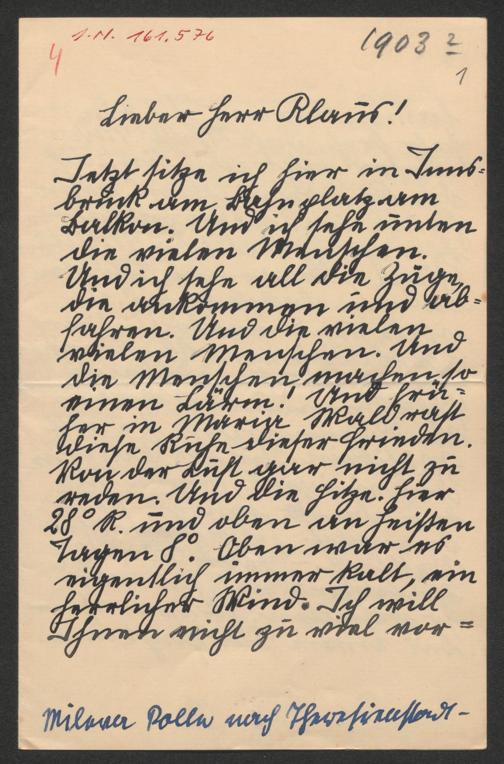 I.N. 161.576
4
1903?
1
Lieber Herr Kraus!
Jetzt sitze ich hier in Inns=
bruck am Bahnplatz am
Balkon. Und ich sehe unten
die vielen Menschen.
Und ich sehe all die Züge,
die ankommen und ab=
fahren. Und die vielen
vielen Menschen. Und
die Menschen machen so
einen Lärm! Und frü=
her in Maria Waldrast
diese Ruhe dieser Frieden.
Von der Luft gar nicht zu
reden. Und die Hitze. Hier
28° R. und oben an heißen
Tagen 8°. Oben war es
eigentlich immer kalt, ein
herrlicher Wind. Ich will
Ihnen nicht zu viel vor=
nach Theresienstadt-